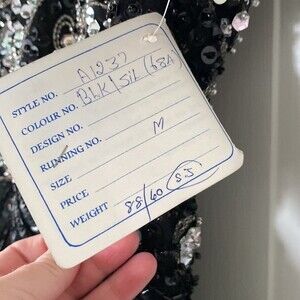 STYLE NO. A1237
COLOUR NO. BLK/SIL (68A)
DESIGN NO.
RUNNING NO.
SIZE M
PRICE
WEIGHT 88/60